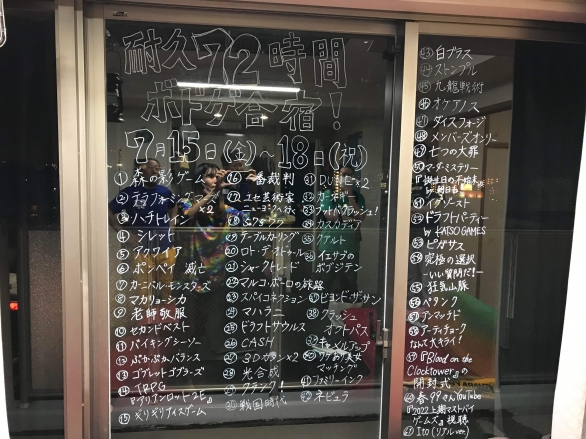 耐久72時間
ボドゲ合宿!
7月15日(金)〜18日(祝)
① 森の影ゲーム
② テラフォーミング×2
③ ハチトレイン
④ シレット
⑤ アクワイア
⑥ ポンペイ滅亡
⑦ カーニバル・モンスターズ
⑧ マカリョーシカ
⑨ 老師敬服
⑩ セカンドベスト
⑪ バイキングシーソー
⑫ ぷかぷかバランス
⑬ ゴブレットゴブラーズ
⑭ TRPG
⑮ ギリギリナイスゲーム
⑯ 一番裁判
⑰ ユビ芸術家
ニューヨークへ行く
⑲ テーブルカーリング
⑳ ロト・デ・オトゥール
㉑ シャークトレード
㉒ マルコ・ポーロの旅路
㉓ スパイコネクション
㉔ マハラニ
㉕ ドラフトサウルス
㉖ CASH
㉗ 3Dガラン×2
㉘ 光合成
㉙ クランク!
㉚ 戦国時代
㉛ DUNE×2
㉞ カスカディア
㉟ アグルト
㊱ イエサブの
ボブジテン
㊲ ビヨンド・ザ・サン
㊳ フラッシュ
オクトパス
㊴ キャメルアップ
マッチング
㊶ ファミリーインク
㊷ ネビュラ
㊸ 白プラス
㊹ ストンプル
㊺ 九龍戦術
㊻ オケアノス
㊼ ダイスフォージ
㊽ メンバーズオンリー
㊾ 七つの大罪
㊿ マーダーミステリー
『誕生日の不始末』
51 イグゾースト
52 ドラフトパーティー
by KATSO GAMES
53 ピガサス
54 究極の選択
-いい質問だ!-
55 狂気山脈
56 ペタンク
57 アンマッチド
58 アーティチョーク
なんて大キライ!
59 『Blood on the
Clocktower』の
開封式
60 春99さんYouTube
『2022上期マストバイ
ゲームズ』視聴
61 Ito(リアルver.)